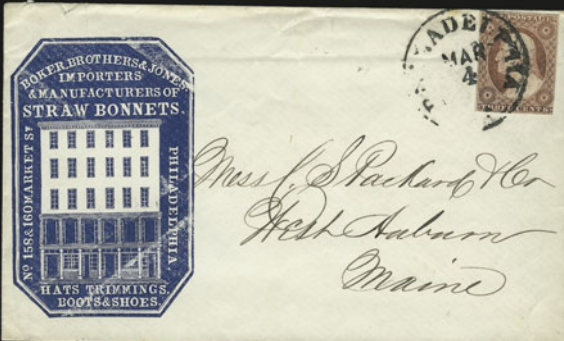 BOKER, BROTHERS & JONES
IMPORTERS
& MANUFACTURERS OF
STRAW BONNETS.
No 158 & 160 MARKET ST
PHILADELPHIA
HATS TRIMMINGS.
BOOTS & SHOES.
PHILADELPHIA
MAR
4
POSTAGE
THREE CENTS
Mess C. S. Packard & Co
West Auburn
Maine